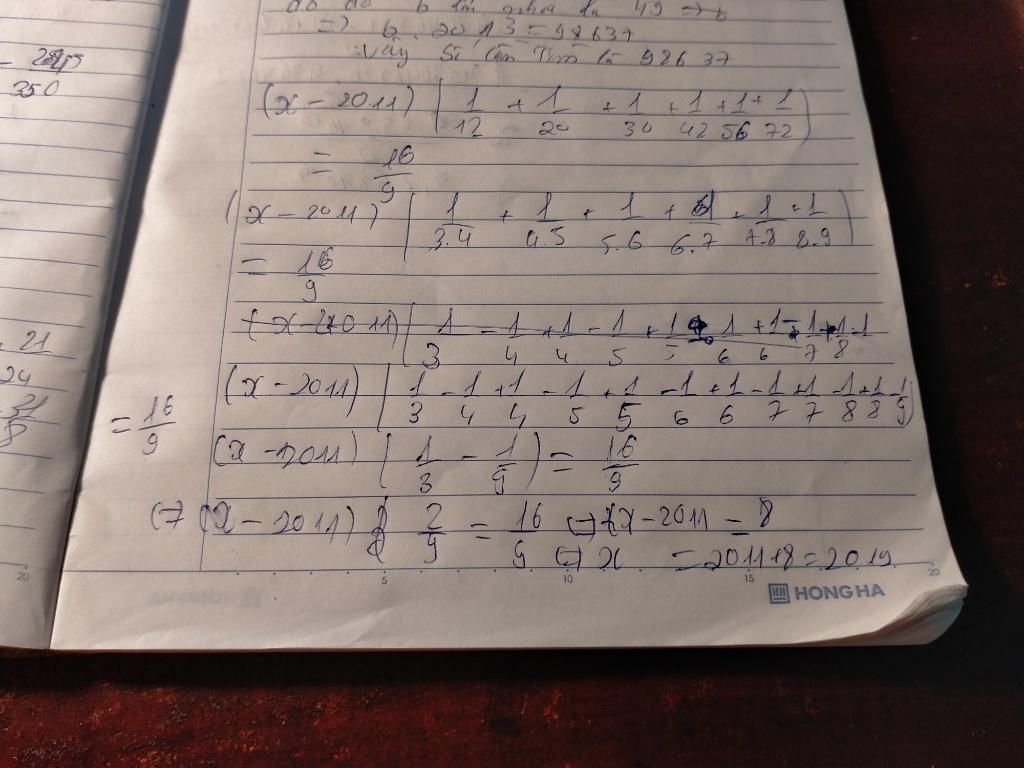 - 2
350
21
24
do do b là 49 => b
=> b. 20 13 = 98637
Vậy Số cần Tìm là 986 37
(x - 2011) (1/12 + 1/20 + 1/30 + 1/42 + 1/56 + 1/72)
= 16/9
(x - 2011) (1/3.4 + 1/4.5 + 1/5.6 + 1/6.7 + 1/7.8 + 1/8.9)
= 16/9
(x - 2011) (1/3 - 1/4 + 1/4 - 1/5 + 1/5 1/6 + 1/6 - 1/7 + 1/8 - 1
(x - 2011) (1/3 - 1/4 + 1/4 - 1/5 + 1/5 - 1/6 + 1/6 - 1/7 + 1/7 - 1/8 + 1/8 - 1/9)
= 16/9
(x - 2011) (1/3 - 1/9) = 16/9
(=) (x - 2011) 2/9 = 16/9 (=) x - 2011 = 8
(=) x = 2011+8 = 2019
20 5 10 15 20
HH HONG HA